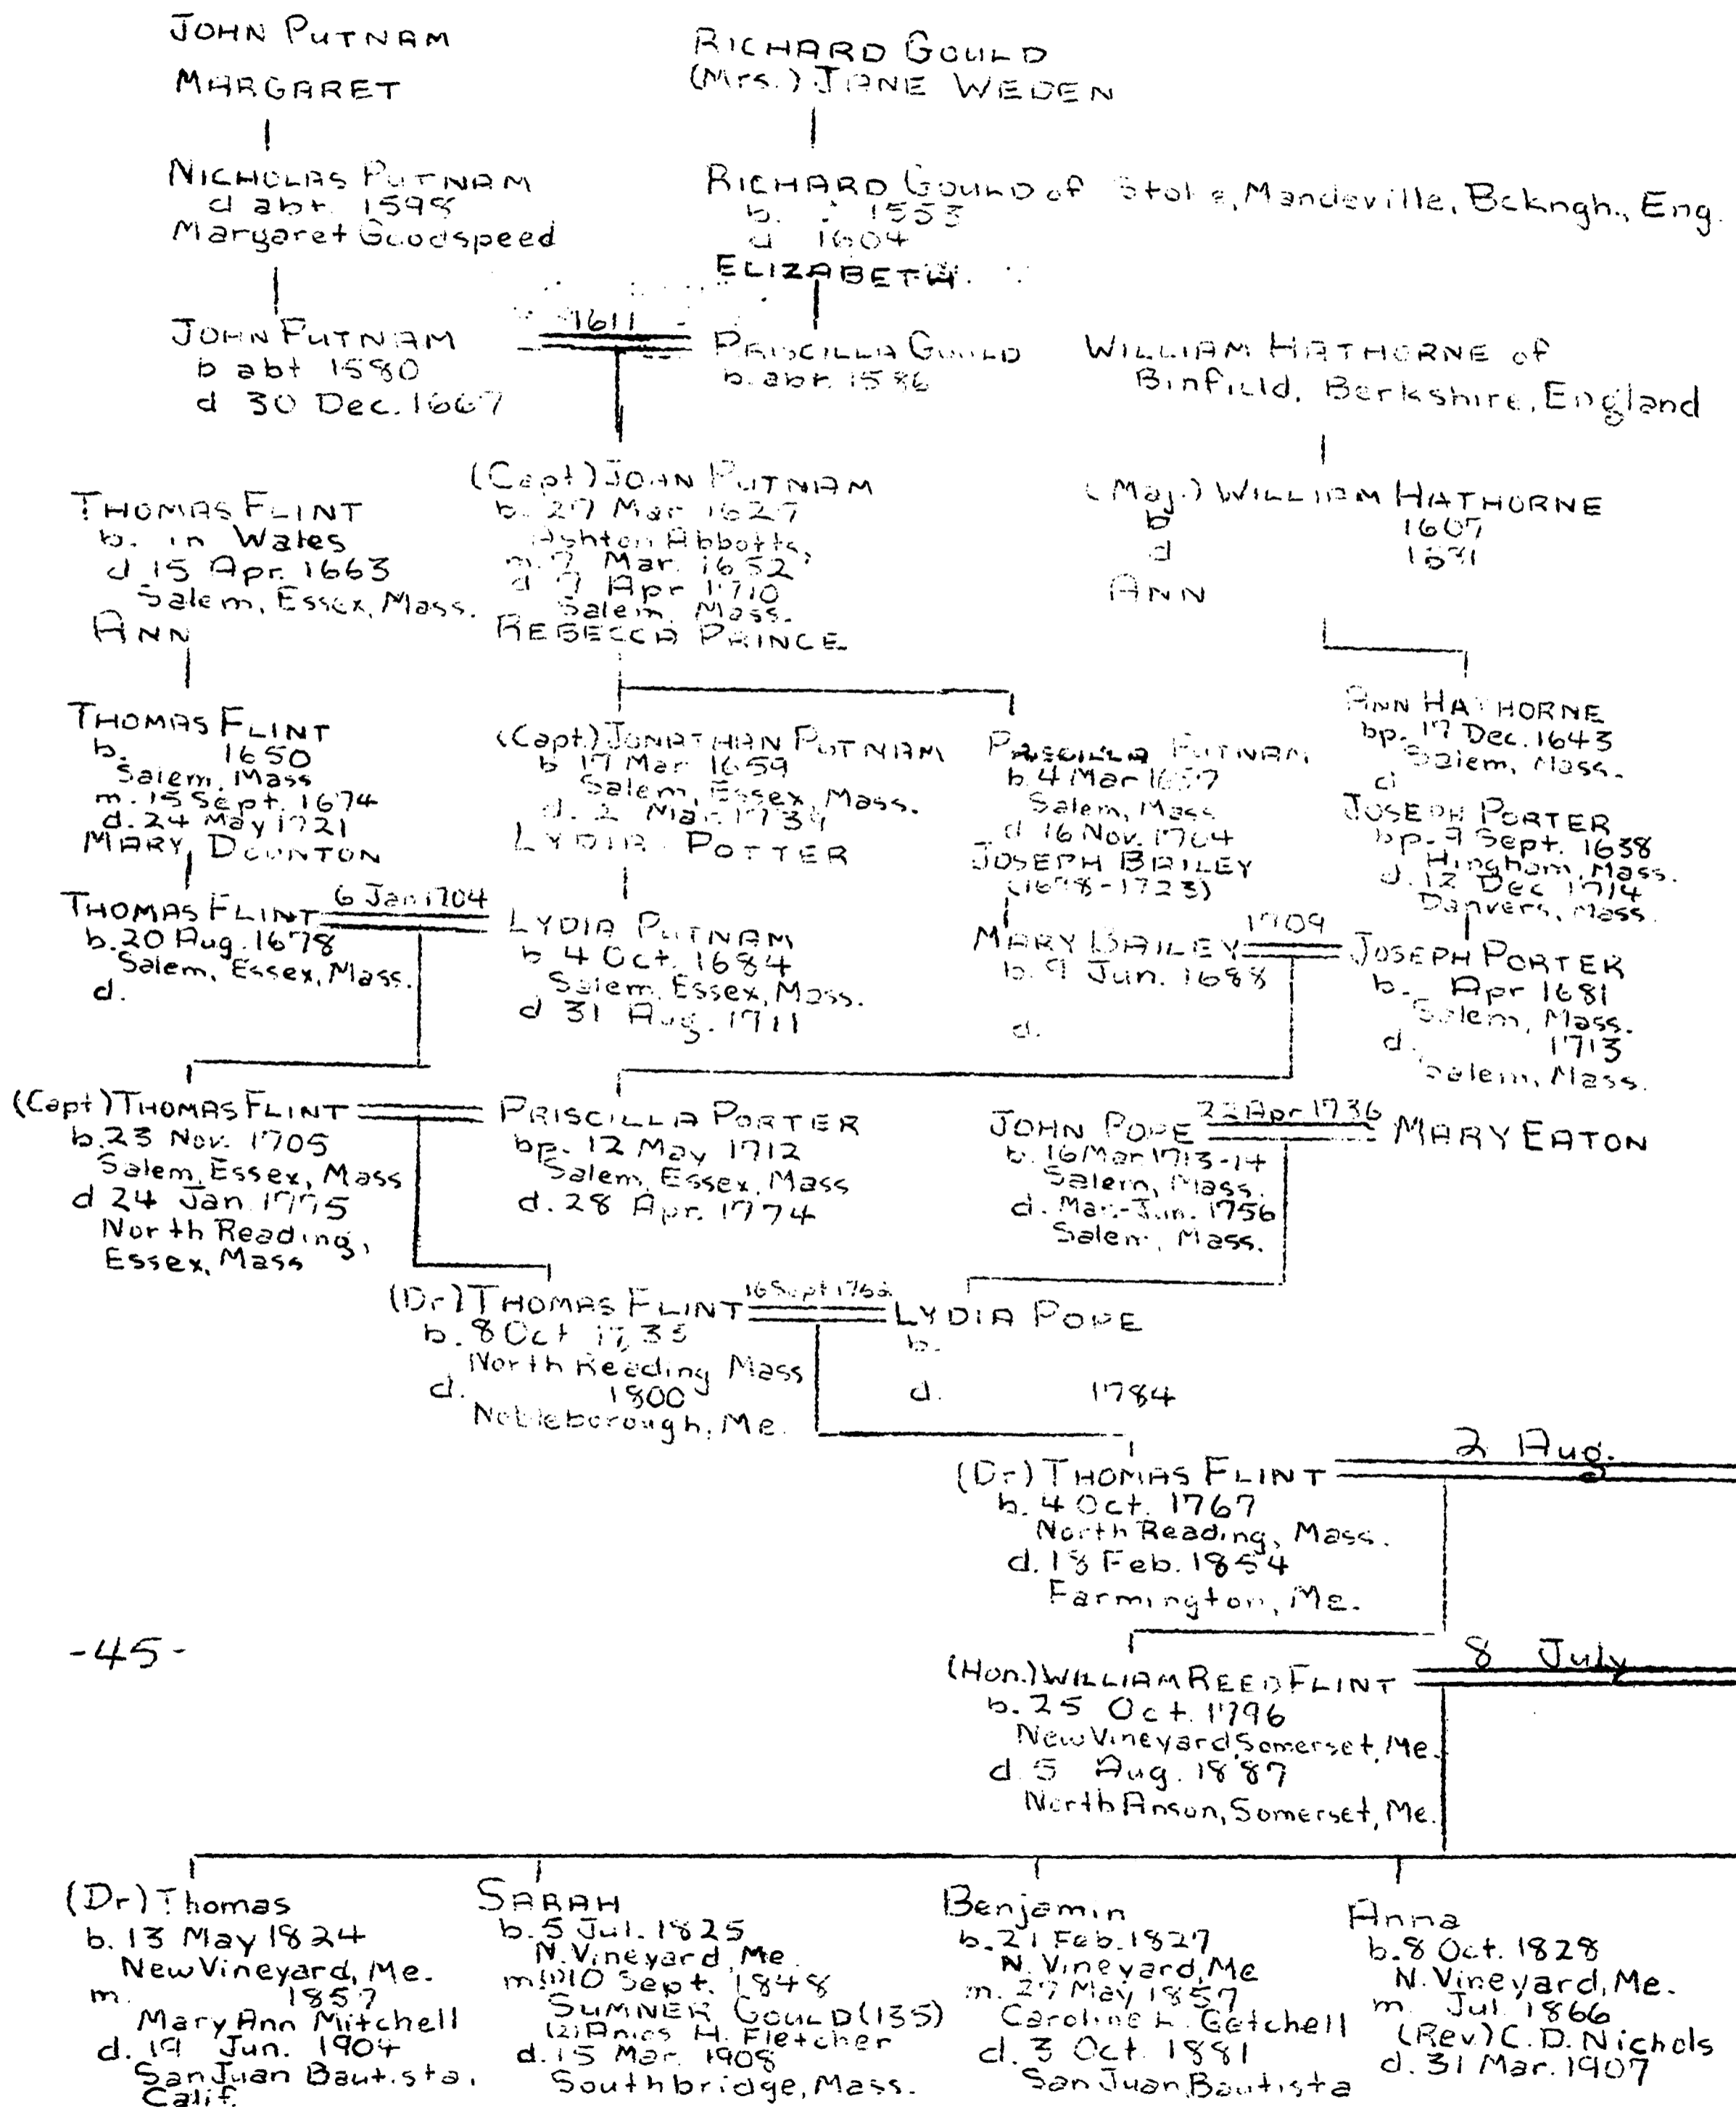 JOHN PUTNAM
MARGARET
RICHARD GOULD
(Mrs.) JANE WEDEN
NICHOLAS PUTNAM
d abt. 1598
Margaret Goodspeed
RICHARD GOULD of Stoke, Mandeville, Bckngh., Eng.
b. 1553
d 1604
ELIZABETH
JOHN PUTNAM
b abt 1580
d 30 Dec. 1667
1611
PRISCILLA GOULD
b. abt. 1586
WILLIAM HATHORNE of
Binfield, Berkshire, England
THOMAS FLINT
b. in Wales
d 15 Apr. 1663
Salem, Essex, Mass.
ANN
(Capt) JOHN PUTNAM
b. 27 Mar 1627
Ashton Abbotts,
m. 7 Mar. 1652
d 7 Apr 1710
Salem, Mass.
REBECCA PRINCE
(Maj.) WILLIAM HATHORNE
b 1607
d
ANN
THOMAS FLINT
b. 1650
Salem, Mass
m. 15 Sept. 1674
d. 24 May 1721
MARY DOUNTON
(Capt) JONATHAN PUTNAM
b 17 Mar 1659
Salem, Essex, Mass.
d. 2 Mar. 1739
LYDIA POTTER
PRISCILLA PUTNAM
b. 4 Mar 1657
Salem, Mass
d 16 Nov. 1704
JOSEPH BAILEY
ANN HATHORNE
bp. 17 Dec. 1643
Salem, Mass.
d
JOSEPH PORTER
bp. 9 Sept. 1638
Hingham, Mass.
d. 12 Dec 1714
Danvers, Mass.
THOMAS FLINT
b. 20 Aug. 1678
Salem, Essex, Mass.
d.
6 Jan 1704
LYDIA PUTNAM
b 4 Oct. 1684
Salem, Essex, Mass.
d 31 Aug. 1711
MARY BAILEY
b. 9 Jun. 1688
d.
1709
JOSEPH PORTER
b. Apr 1681
Salem, Mass.
d. 1713
Salem, Mass.
(Capt) THOMAS FLINT
b. 23 Nov. 1705
Salem, Essex, Mass
d 24 Jan. 1775
North Reading,
Essex, Mass
PRISCILLA PORTER
bp. 12 May 1712
Salem, Essex, Mass
d. 28 Apr. 1774
JOHN POPE
b. 16 Mar 1713-14
Salem, Mass.
d. Mar.-Jun. 1756
Salem, Mass.
22 Apr 1736
MARY EATON
(Dr) THOMAS FLINT
b. 8 Oct 1733
North Reading Mass
d. 1800
Nobleborough, Me.
16 Sept 1762
LYDIA POPE
b.
d. 1784
(Dr) THOMAS FLINT
b. 4 Oct. 1767
North Reading, Mass.
d. 18 Feb. 1854
Farmington, Me.
2 Aug.
-45-
(Hon.) WILLIAM REED FLINT
b. 25 Oct. 1796
New Vineyard, Somerset, Me.
d. 5 Aug. 1887
North Anson, Somerset, Me.
8 July
(Dr) Thomas
b. 13 May 1824
New Vineyard, Me.
m. 1857
Mary Ann Mitchell
d. 19 Jun. 1904
San Juan Bautista,
Calif.
SARAH
b. 5 Jul. 1825
N. Vineyard, Me.
m (1) 10 Sept. 1848
SUMNER GOULD (135)
(2) Amos H. Fletcher
d. 15 Mar. 1908
Southbridge, Mass.
Benjamin
b. 21 Feb. 1827
N. Vineyard, Me
m. 27 May 1857
Caroline L. Getchell
d. 3 Oct. 1881
San Juan Bautista
Anna
b. 8 Oct. 1828
N. Vineyard, Me.
m. Jul. 1866
(Rev) C. D. Nichols
d. 31 Mar. 1907